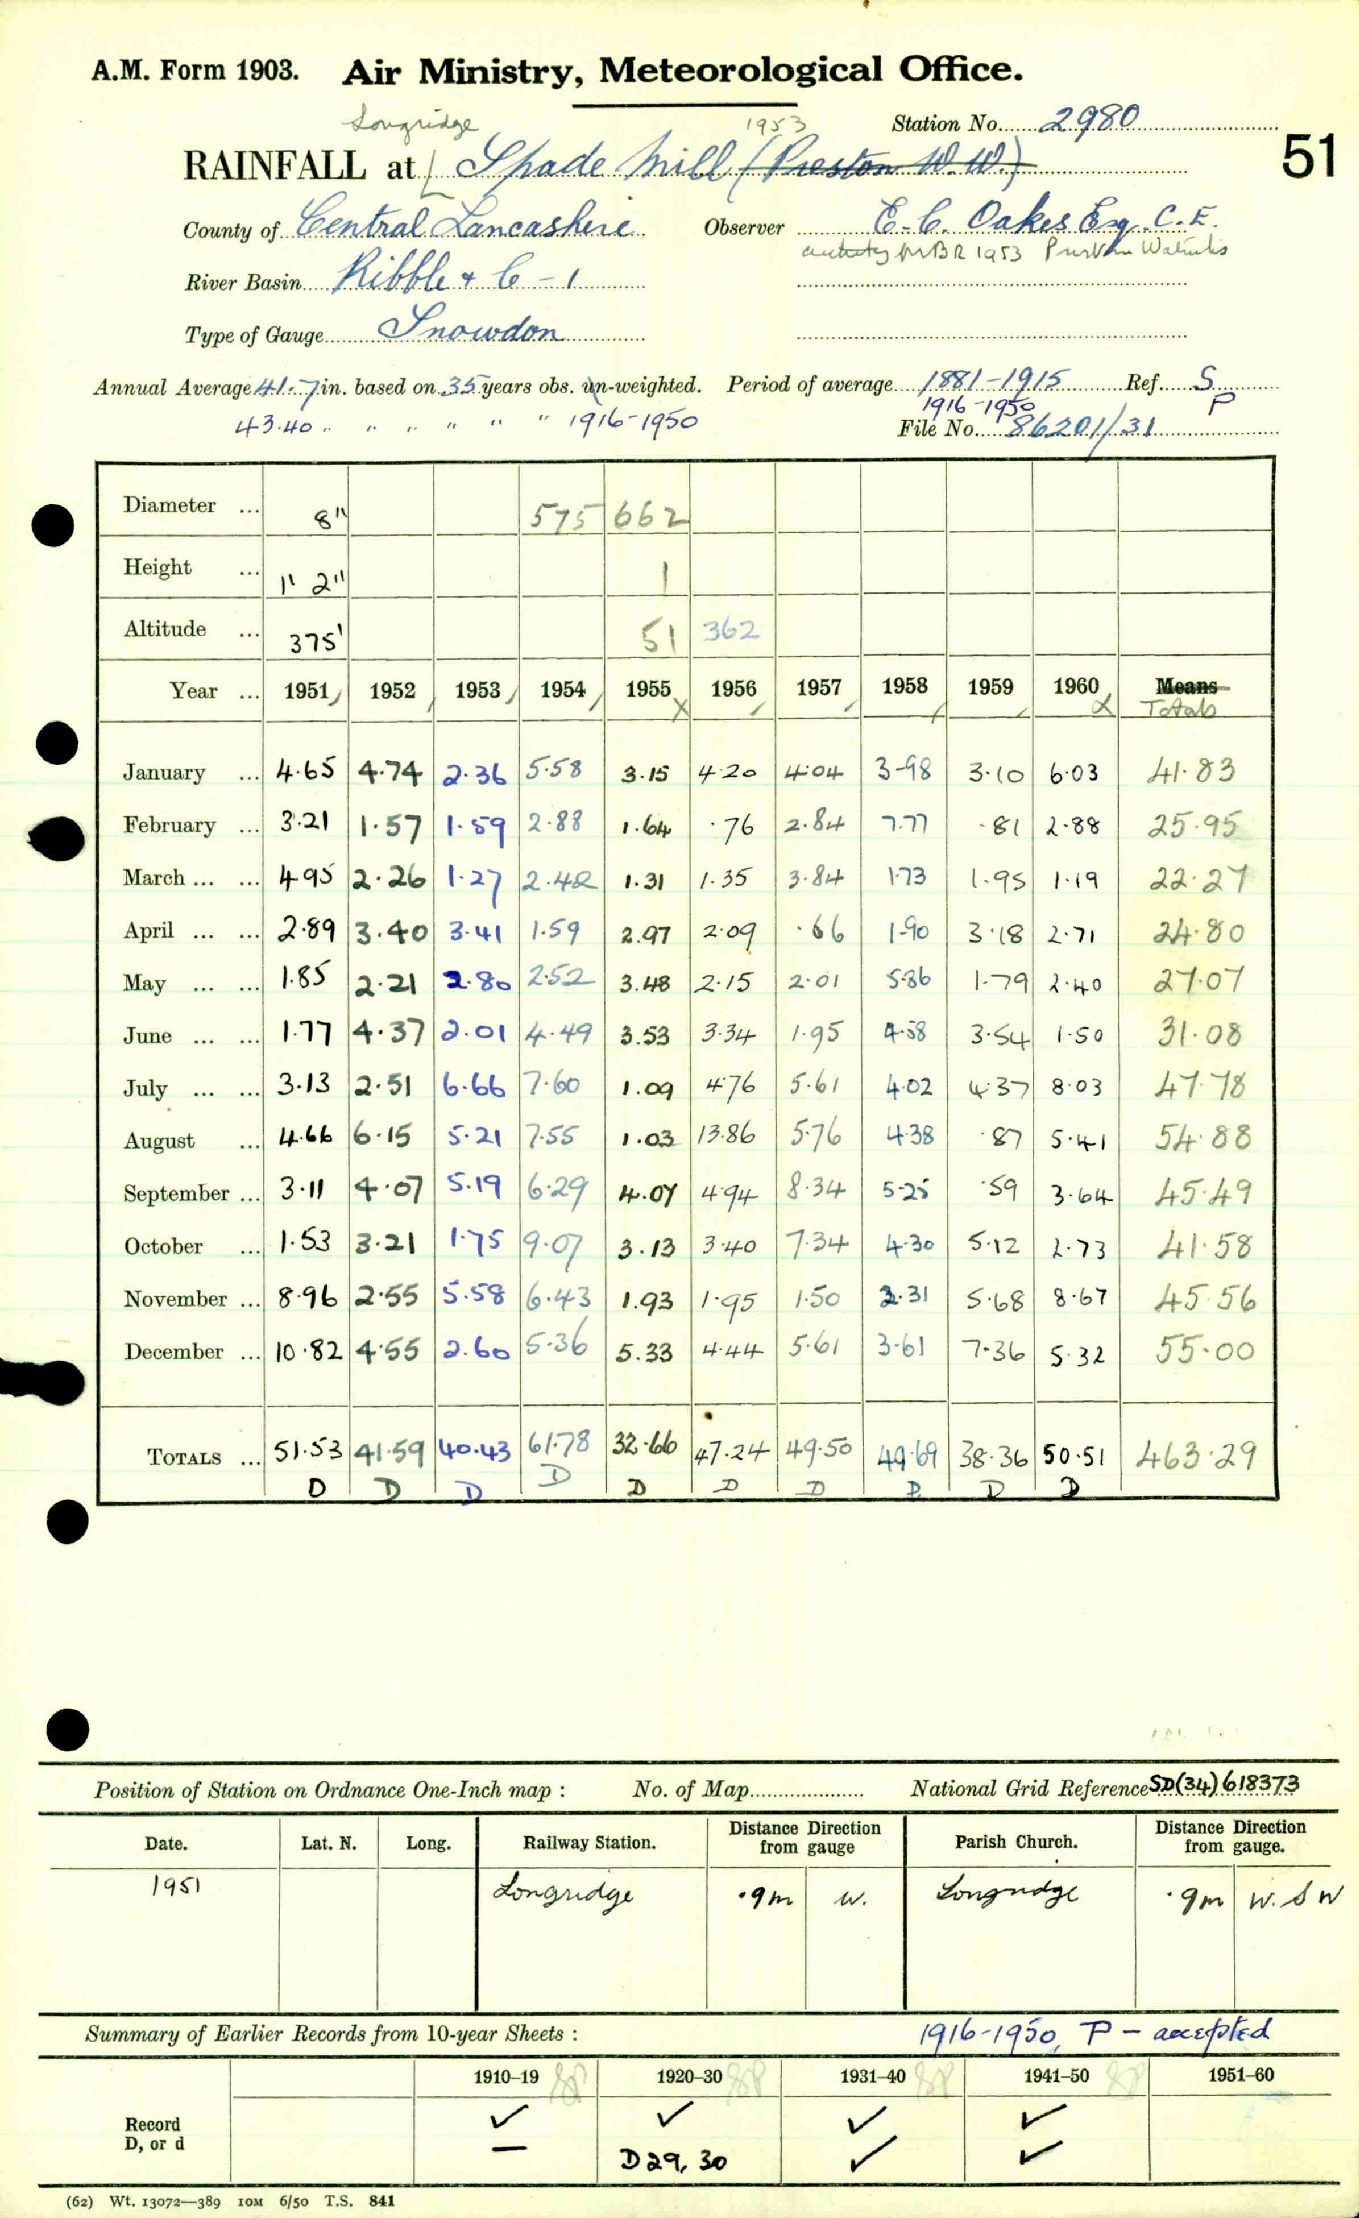 A.M. Form 1903. Air Ministry, Meteorological Office.
Longridge 1953 Station No. 2980
RAINFALL at Spade Mill (Preston W.W.) 51
County of Central Lancashire Observer E. C. Oakes Esq. C.E.
BR 1953
River Basin Ribble + C - 1
Type of Gauge Snowdon
Annual Average 41.7 in. based on 35 years obs. un-weighted. Period of average 1881-1915 Ref. S
43.40 " " " " " " 1916-1950 1916-1950 P
File No. 86201/31
Diameter ... 8" 575 662
Height ... 1' 2" 1
Altitude ... 375' 51 362
Year ... 1951 1952 1953 1954 1955 1956 1957 1958 1959 1960 Means
Totals
January ... 4.65 4.74 2.36 5.58 3.15 4.20 4.04 3.98 3.10 6.03 41.83
February ... 3.21 1.57 1.59 2.88 1.64 .76 2.84 7.77 .81 2.88 25.95
March ... ... 4.95 2.26 1.27 2.42 1.31 1.35 3.84 1.73 1.95 1.19 22.27
April ... ... 2.89 3.40 3.41 1.59 2.97 2.09 .66 1.90 3.18 2.71 24.80
May ... ... 1.85 2.21 2.80 2.52 3.48 2.15 2.01 5.86 1.79 2.40 27.07
June ... ... 1.77 4.37 2.01 4.49 3.53 3.34 1.95 4.58 3.54 1.50 31.08
July ... ... 3.13 2.51 6.66 7.60 1.09 4.76 5.61 4.02 4.37 8.03 47.78
August ... 4.66 6.15 5.21 7.55 1.03 13.86 5.76 4.38 .87 5.41 54.88
September ... 3.11 4.07 5.19 6.29 4.07 4.94 8.34 5.25 .59 3.64 45.49
October ... 1.53 3.21 1.75 9.07 3.13 3.40 7.34 4.30 5.12 2.73 41.58
November ... 8.96 2.55 5.58 6.43 1.93 1.95 1.50 2.31 5.68 8.67 45.56
December ... 10.82 4.55 2.60 5.36 5.33 4.44 5.61 3.61 7.36 5.32 55.00
TOTALS ... 51.53 41.59 40.43 61.78 32.66 47.24 49.50 49.69 38.36 50.51 463.29
D D D D D D D D D D
Position of Station on Ordnance One-Inch map : No. of Map National Grid Reference SD(34) 618373
Date. Lat. N. Long. Railway Station. Distance Direction from gauge Parish Church. Distance Direction from gauge.
1951 Longridge .9m W. Longridge .9m W.SW
Summary of Earlier Records from 10-year Sheets : 1916-1950, P - accepted
1910–19 1920–30 1931–40 1941–50 1951–60
Record ✓ ✓ ✓ ✓
D, or d — D29, 30 ✓ ✓
(62) Wt. 13072—389 10M 6/50 T.S. 841